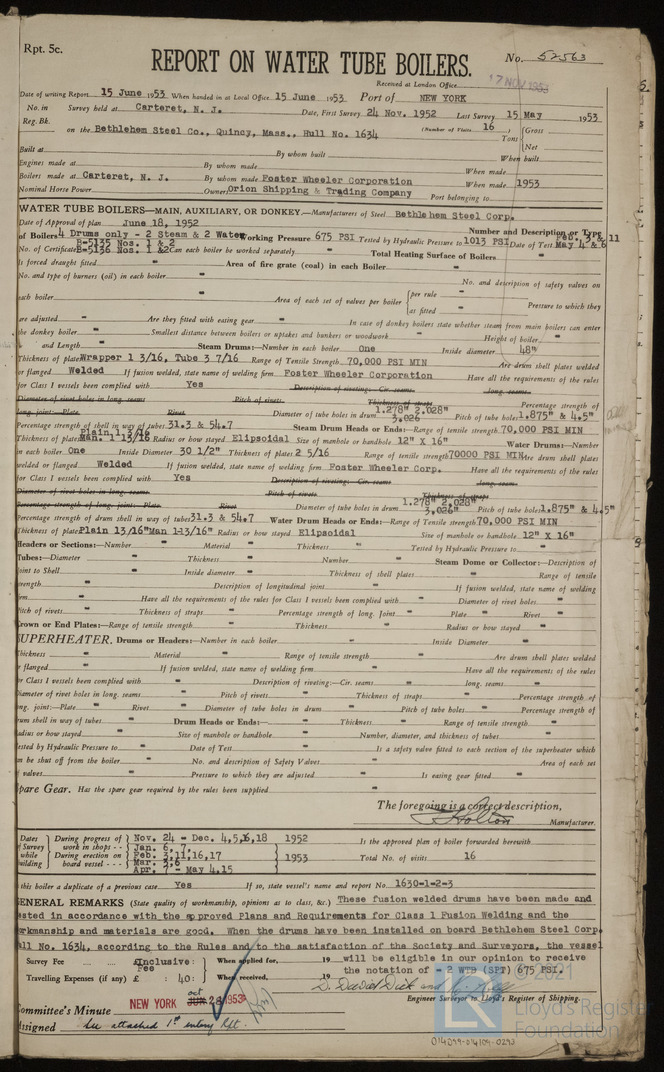 Rpt. 5c.
REPORT ON WATER TUBE BOILERS.
No. 52563
Received at London Office 17 NOV 1953
Date of writing Report 15 June 1953 When handed in at Local Office 15 June 1953 Port of NEW YORK
No. in Survey held at Carteret, N. J. Date, First Survey 24 Nov. 1952 Last Survey 15 May 1953
Reg. Bk. (Number of Visits 16 ) Gross
on the Bethlehem Steel Co., Quincy, Mass., Hull No. 1634 Tons Net
Built at By whom built When built
Engines made at By whom made When made
Boilers made at Carteret, N. J. By whom made Foster Wheeler Corporation When made 1953
Nominal Horse Power Owner Orion Shipping & Trading Company Port belonging to
WATER TUBE BOILERS—MAIN, AUXILIARY, OR DONKEY.—Manufacturers of Steel Bethlehem Steel Corp.
Date of Approval of plan June 18, 1952 Number and Description or Type
of Boilers 4 Drums only - 2 Steam & 2 Water Working Pressure 675 PSI Tested by Hydraulic Pressure to 1013 PSI Date of Test Feb. 3 & 11 May 4 & 6
No. of Certificate B-5135 Nos. 1 & 2 B-5136 Nos. 1 & 2 Can each boiler be worked separately " Total Heating Surface of Boilers "
Is forced draught fitted " Area of fire grate (coal) in each Boiler "
No. and type of burners (oil) in each boiler " No. and description of safety valves on
each boiler " Area of each set of valves per boiler { per rule " as fitted " Pressure to which they
are adjusted " Are they fitted with easing gear " In case of donkey boilers state whether steam from main boilers can enter
the donkey boiler " Smallest distance between boilers or uptakes and bunkers or woodwork " Height of boiler "
and Length " Steam Drums:—Number in each boiler One Inside diameter 48"
Thickness of plates Wrapper 1 3/16, Tube 3 7/16 Range of Tensile Strength 70,000 PSI MIN Are drum shell plates welded
or flanged Welded If fusion welded, state name of welding firm Foster Wheeler Corporation Have all the requirements of the rules
for Class I vessels been complied with Yes Description of riveting:— Cir. seams long. seams
Diameter of rivet holes in long. seams Pitch of rivets Thickness of straps Percentage strength of
long. joint:—Plate Rivet Diameter of tube holes in drum 1.278" 2.028" 3.026" Pitch of tube holes 1.875" & 4.5"
Percentage strength of shell in way of tubes 31.3 & 54.7 Steam Drum Heads or Ends:—Range of tensile strength 70,000 PSI MIN
Thickness of plates Plain 13/16 Man. 1 13/16 Radius or how stayed Elipsoidal Size of manhole or handhole 12" X 16" Water Drums:—Number
in each boiler One Inside Diameter 30 1/2" Thickness of plates 2 5/16 Range of tensile strength 70000 PSI MIN Are drum shell plates
welded or flanged Welded If fusion welded, state name of welding firm Foster Wheeler Corp. Have all the requirements of the rules
for Class I vessels been complied with Yes Description of riveting:— Cir. seams long. seams
Diameter of rivet holes in long. seams Pitch of rivets Thickness of straps
Percentage strength of long. joint:—Plate Rivet Diameter of tube holes in drum 1.278" 2.028" 3.026" Pitch of tube holes 1.875" & 4.5"
Percentage strength of drum shell in way of tubes 31.3 & 54.7 Water Drum Heads or Ends:—Range of Tensile strength 70,000 PSI MIN
Thickness of plates Plain 13/16"Man 1-13/16" Radius or how stayed Elipsoidal Size of manhole or handhole 12" X 16"
Headers or Sections:—Number " Material " Thickness " Tested by Hydraulic Pressure to "
Tubes:—Diameter " Thickness " Number " Steam Dome or Collector:—Description of
Joint to Shell " Inside diameter " Thickness of shell plates " Range of tensile
strength " Description of longitudinal joint " If fusion welded, state name of welding
firm " Have all the requirements of the rules for Class I vessels been complied with " Diameter of rivet holes "
Pitch of rivets " Thickness of straps " Percentage strength of long. Joint " Plate " Rivet "
Crown or End Plates:—Range of tensile strength " Thickness " Radius or how stayed "
SUPERHEATER. Drums or Headers:—Number in each boiler " Inside Diameter "
Thickness " Material " Range of tensile strength " Are drum shell plates welded
or flanged " If fusion welded, state name of welding firm " Have all the requirements of the rules
for Class I vessels been complied with " Description of riveting:—Cir. seams " long. seams "
Diameter of rivet holes in long. seams " Pitch of rivets " Thickness of straps " Percentage strength of
long. joint:—Plate " Rivet " Diameter of tube holes in drum " Pitch of tube holes " Percentage strength of
drum shell in way of tubes " Drum Heads or Ends:— " Thickness " Range of tensile strength "
Radius or how stayed " Size of manhole or handhole " Number, diameter, and thickness of tubes "
Tested by Hydraulic Pressure to " Date of Test " Is a safety valve fitted to each section of the superheater which
can be shut off from the boiler " No. and description of Safety Valves " Area of each set
of valves " Pressure to which they are adjusted " Is easing gear fitted "
Spare Gear. Has the spare gear required by the rules been supplied "
The foregoing is a correct description,
Manufacturer.
Dates of Survey while building { During progress of work in shops - - { Nov. 24 - Dec. 4,5,16,18 1952 Jan. 6, 7, Is the approved plan of boiler forwarded herewith
{ During erection on board vessel - - - { Feb. 3,11,16,17 Mar. 2,6 Apr. 7 - May 4,15 1953 Total No. of visits 16
Is this boiler a duplicate of a previous case Yes If so, state vessel's name and report No. 1630-1-2-3
GENERAL REMARKS (State quality of workmanship, opinions as to class, &c.) These fusion welded drums have been made and
tested in accordance with the approved Plans and Requirements for Class 1 Fusion Welding and the
workmanship and materials are good. When the drums have been installed on board Bethlehem Steel Corp.
Hull No. 1634, according to the Rules and to the satisfaction of the Society and Surveyors, the vessel
Survey Fee ... ... Inclusive: Fee When applied for, 19 will be eligible in our opinion to receive
Travelling Expenses (if any) £ : 40: When received, 19 the notation of - 2 WTB (SPT) 675 PSI.
Engineer Surveyor to Lloyd's Register of Shipping.
Committee's Minute NEW YORK oct JUN 28 1953
Assigned See attached 1st entry Rpt.
© 2021
Lloyd's Register
Foundation
014099-014109-0293